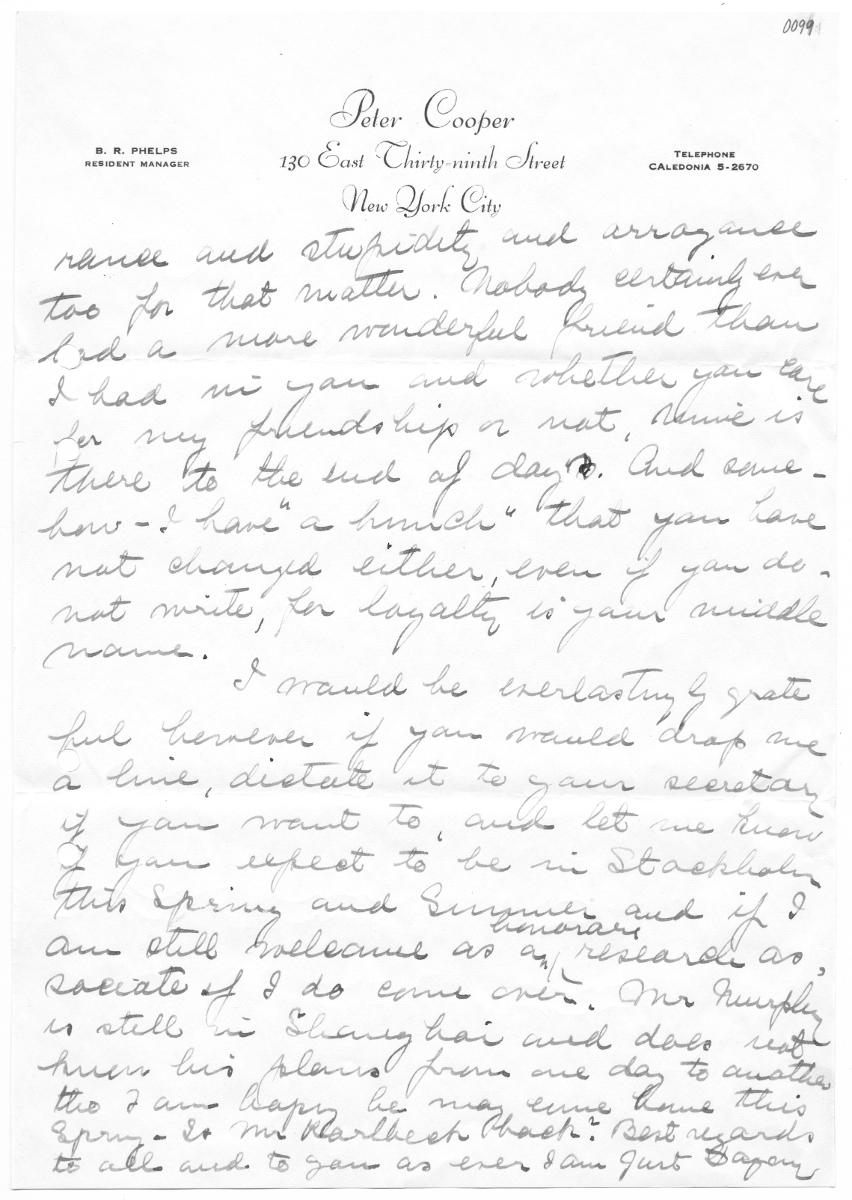 0099
Peter Cooper
B. R. PHELPS
RESIDENT MANAGER
130 East Thirty-ninth Street
TELEPHONE
CALEDONIA 5-2670
New York City
rance and stupidity and arrogance
too for that matter. Nobody certainly ever
had a more wonderful friend than
I had in you and whether you care
for my friendship or not, mine is
there to the end of days. And some-
how - I have "a hunch" that you have
not changed either, even if you do
not write, for loyalty is your middle
name.
I would be everlastingly grate
ful however if you would drop me
a line, dictate it to your secretary
if you want to, and let me know
if you expect to be in Stockholm
this Spring and Summer and if I
am still welcome as an honorary research as,
sociate if I do come over. Mr Murphy
is still in Shanghai and does not
know his plans from one day to another
tho I am happy he may come home this
Spring - Is Mr Karlbeck back? Best regards
to all and to you as ever I am just Dagny